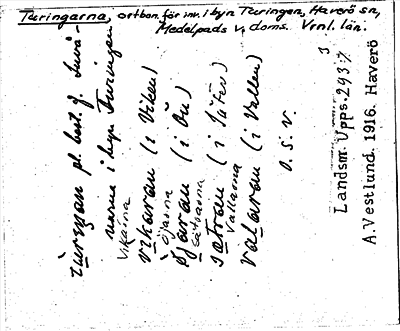 Turingarna, ortbon. för inv. i byn Turingen, Haverö sn,
Medelpads v. doms. Vrnl. län.
pl. best. f. Invå-
narna i byn Turingen
Vikarna
vikaran (i Viken)
Öjarna
öjaran (i Ön)
Sätrarna
sætran (i Sätra)
Vallarna
valaran (i Vallen)
o. s. v.
Landsm. Upps. 293:7
3
A. Vestlund. 1916. Haverö